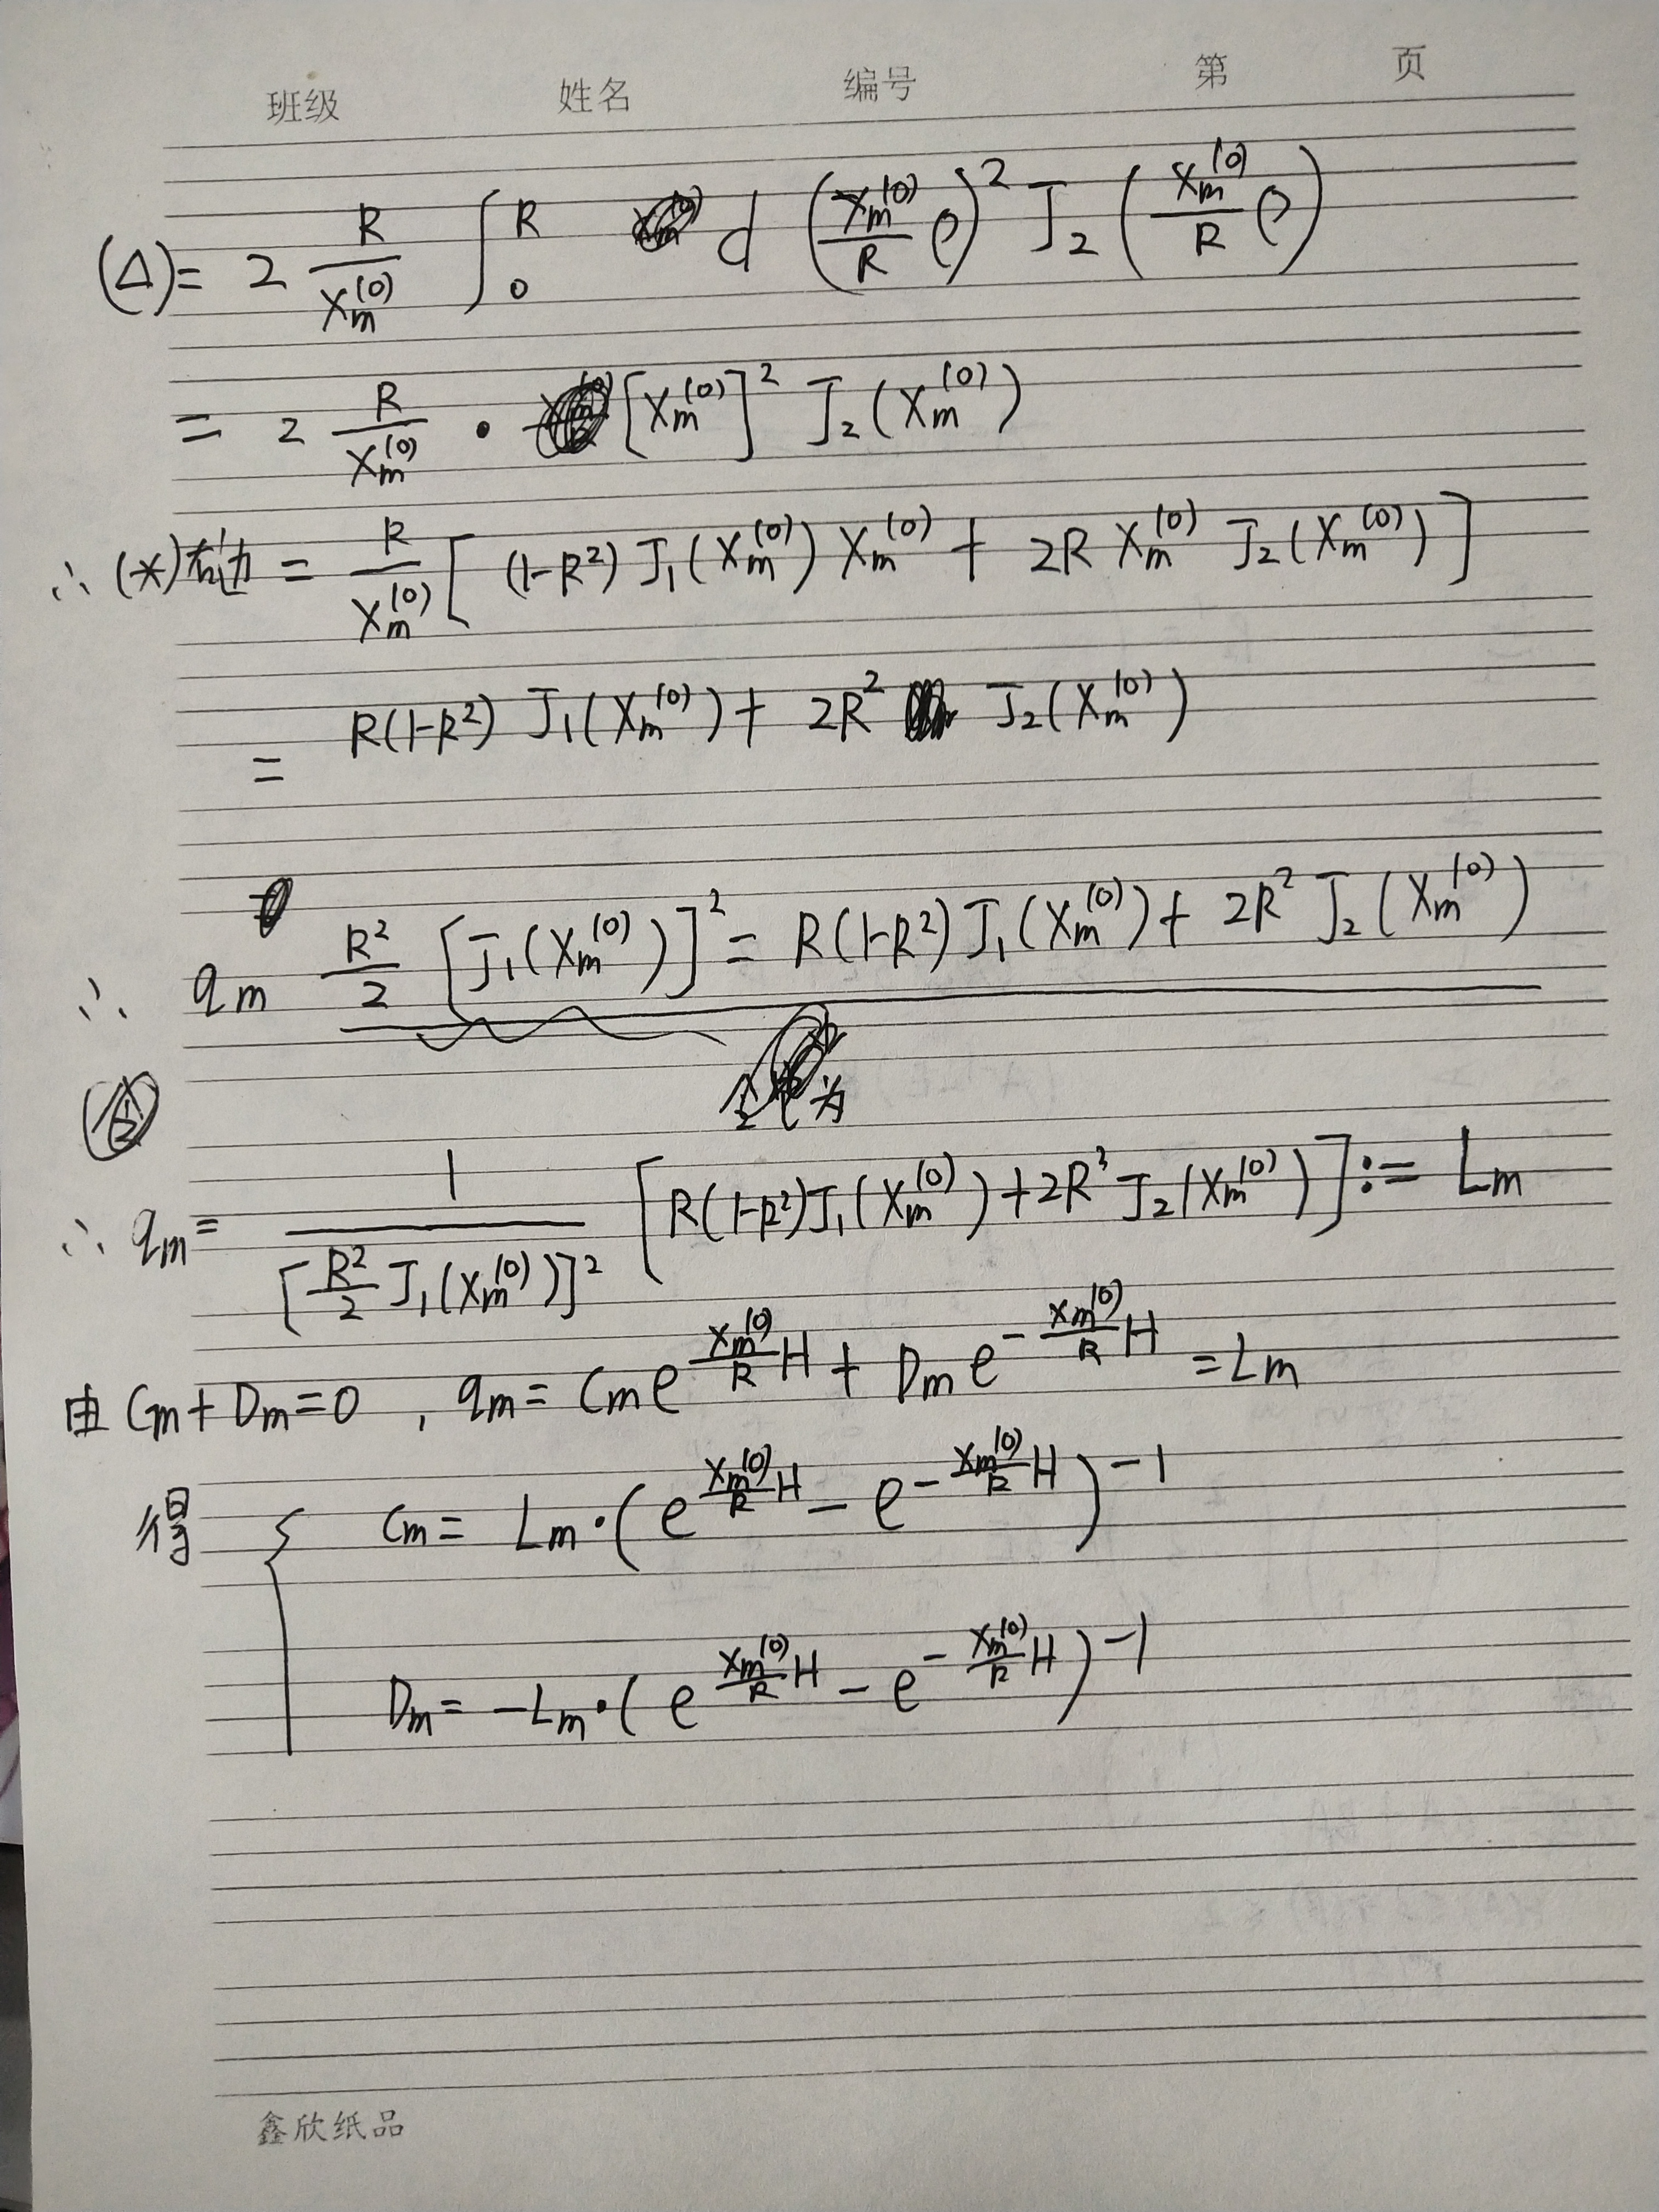 班级 姓名 编号 第 页
(Δ)= 2 R/x_m^(0) ∫_0^R d (x_m^(0)/R ρ)^2 J_2 (x_m^(0)/R ρ)
= 2 R/x_m^(0) · [x_m^(0)]^2 J_2(x_m^(0))
∴ (*)右边 = R/x_m^(0) [ (1-R^2) J_1(x_m^(0)) x_m^(0) + 2R x_m^(0) J_2(x_m^(0)) ]
= R(1-R^2) J_1(x_m^(0)) + 2R^2 J_2(x_m^(0))
∴ q_m R^2/2 [J_1(x_m^(0))]^2 = R(1-R^2) J_1(x_m^(0)) + 2R^2 J_2(x_m^(0))
∴ q_m = 1/[R^2/2 J_1(x_m^(0))]^2 [R(1-R^2)J_1(x_m^(0)) + 2R^2 J_2(x_m^(0))] := L_m
由 C_m + D_m = 0 , q_m = C_m e^(x_m^(0)/R H) + D_m e^(- x_m^(0)/R H) = L_m
得 { C_m = L_m · ( e^(x_m^(0)/R H) - e^(- x_m^(0)/R H) )^-1
D_m = -L_m · ( e^(x_m^(0)/R H) - e^(- x_m^(0)/R H) )^-1
鑫欣纸品